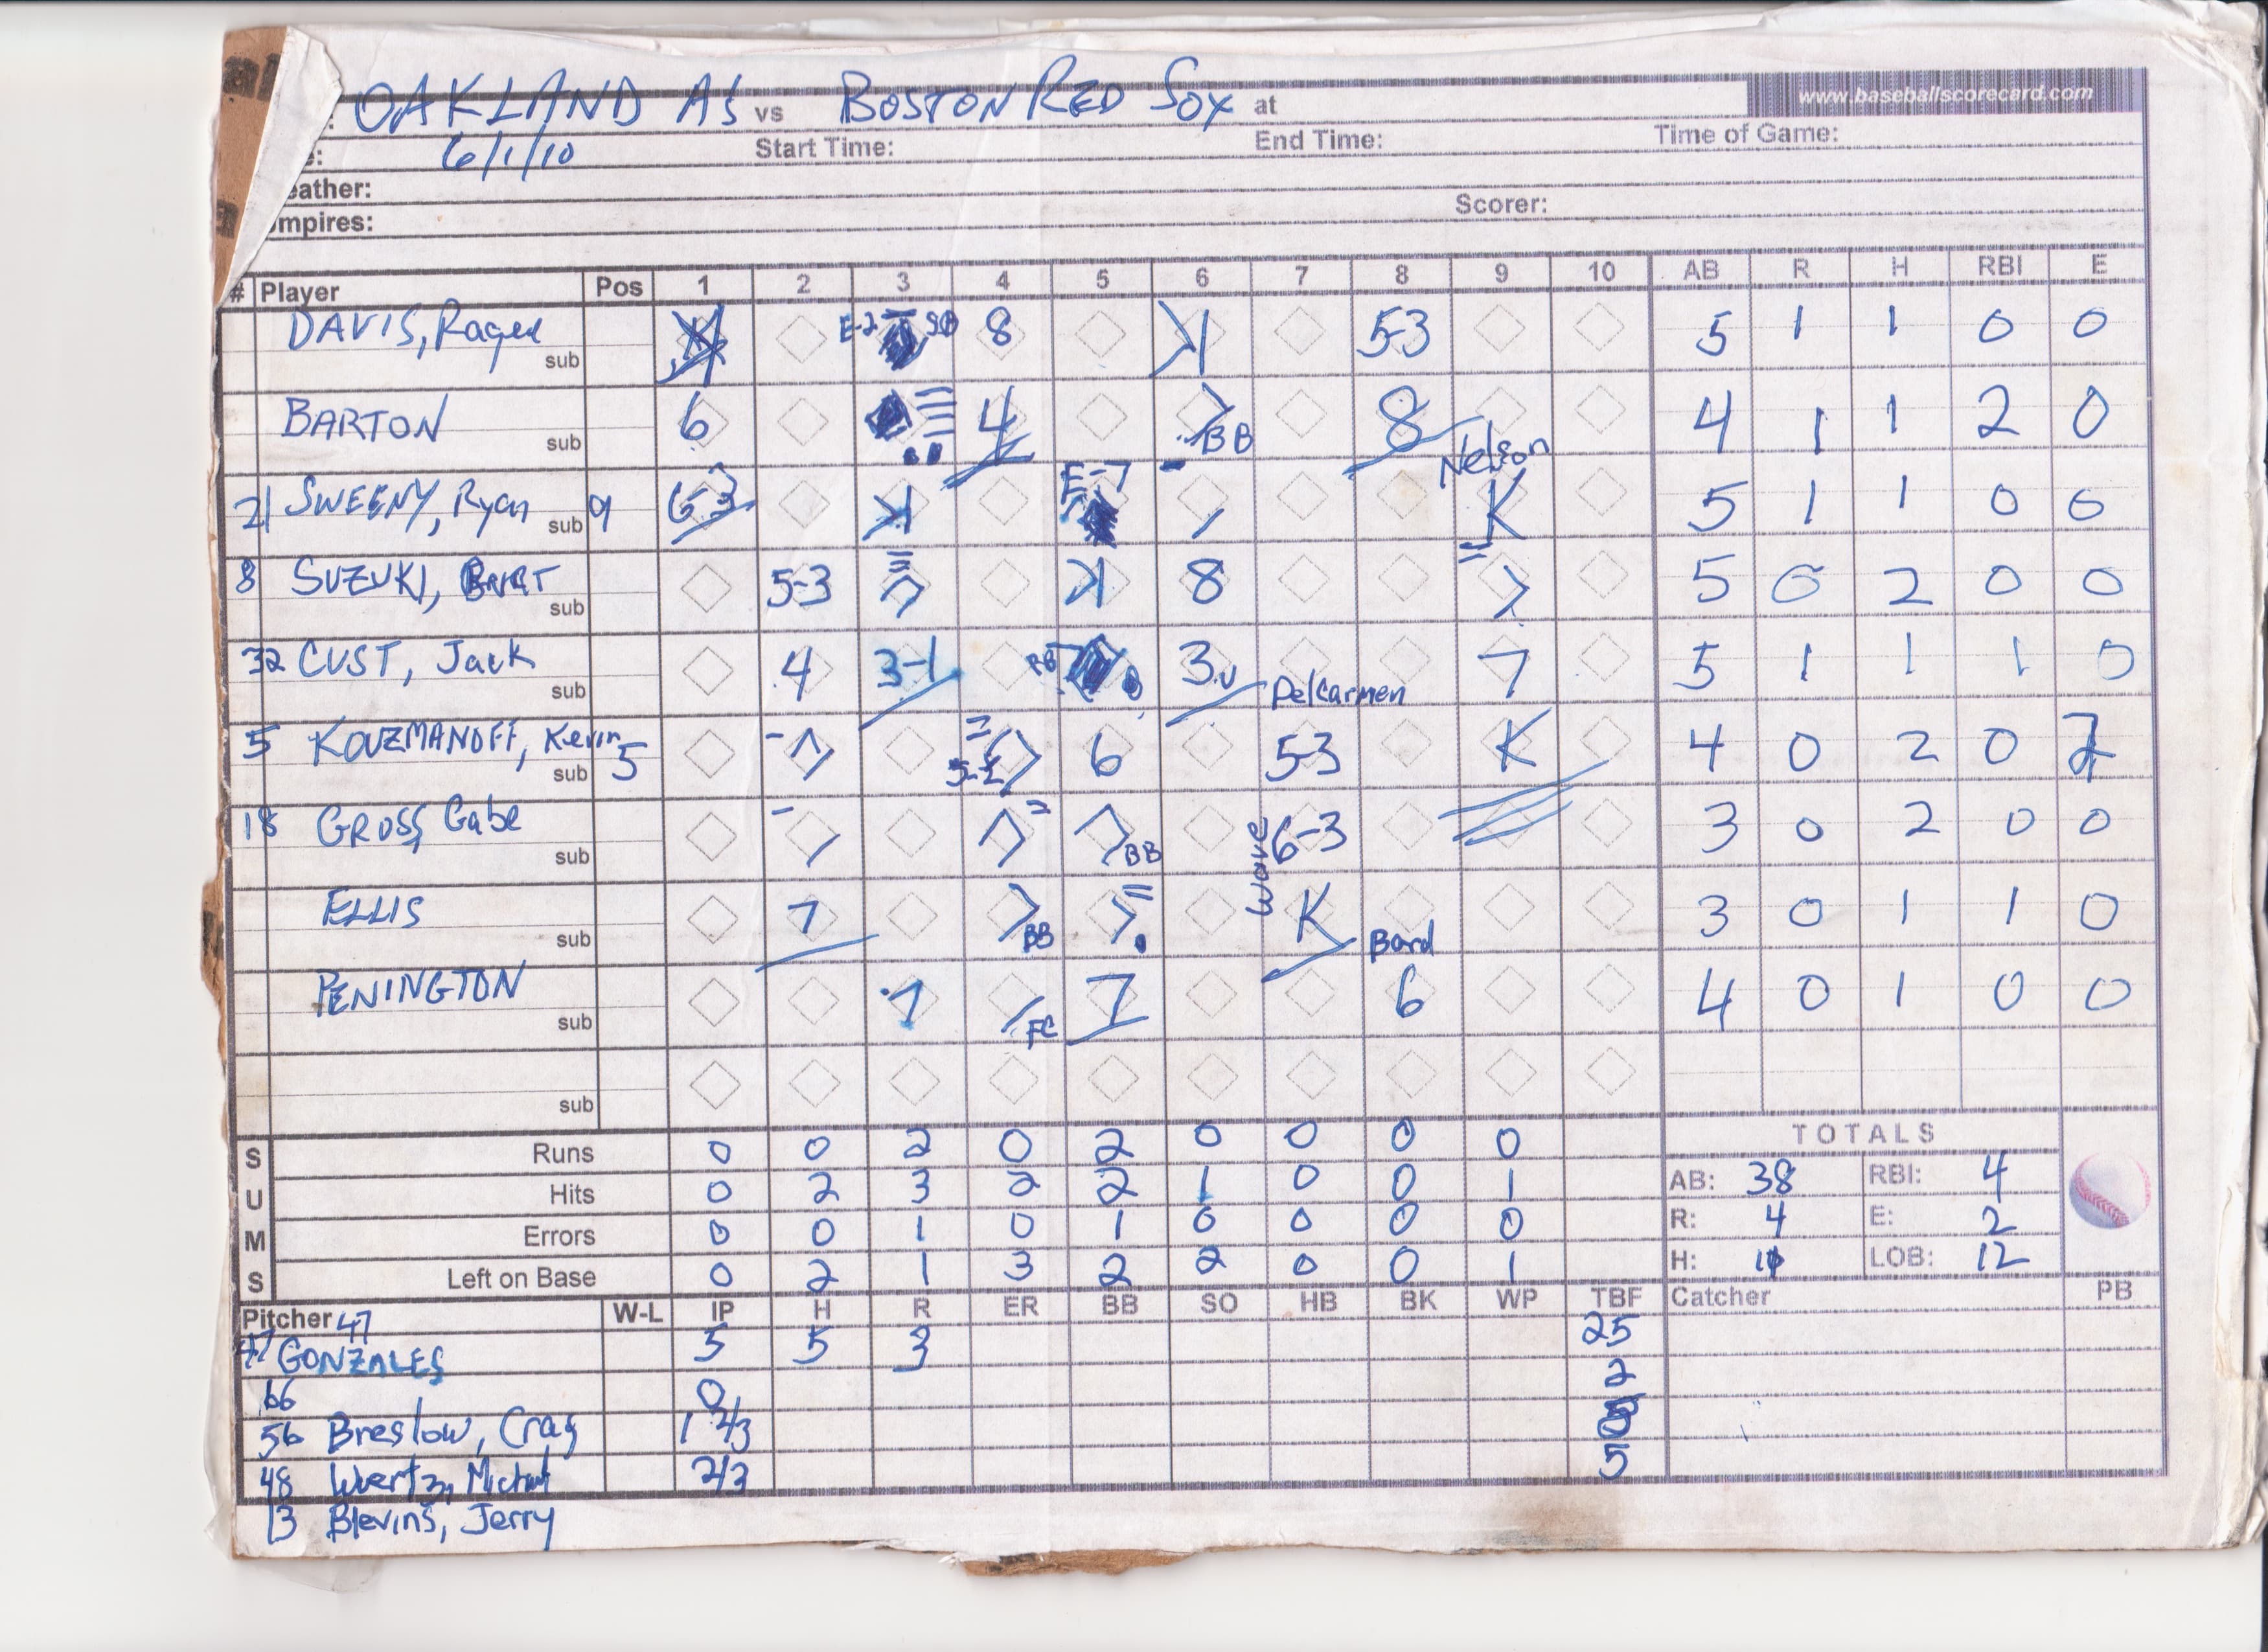 OAKLAND A's vs BOSTON RED SOX at
www.baseballscorecard.com
e: 6/1/10 Start Time: End Time: Time of Game:
eather:
mpires: Scorer:
# Player Pos 1 2 3 4 5 6 7 8 9 10 AB R H RBI E
DAVIS, Rajai E-2 SB 8 K 53 5 1 1 0 0
sub
BARTON 6 4 BB 8 4 1 1 2 0
sub
Nelson
21 SWEENY, Ryan 9 6-3 K E-7 K 5 1 1 0 0
sub
8 SUZUKI, 5-3 K 8 5 0 2 0 0
sub
32 CUST, Jack 4 3-1 3U 7 5 1 1 1 0
sub
Delcarmen
5 KOUZMANOFF, Kevin 5 6 53 K 4 0 2 0 2
sub
18 GROSS, Gabe BB Wave 6-3 3 0 2 0 0
sub
ELLIS 7 BB K 3 0 1 1 0
sub
Bard
PENINGTON FC 7 6 4 0 1 0 0
sub
sub
SUMS
Runs 0 0 2 0 2 0 0 0 0
Hits 0 2 3 2 2 1 0 0 1
Errors 0 0 1 0 1 0 0 0 0
Left on Base 0 2 1 3 2 2 0 0 1
TOTALS
AB: 38 RBI: 4
R: 4 E: 2
H: LOB: 12
Pitcher W-L IP H R ER BB SO HB BK WP TBF Catcher PB
47 GONZALES 5 5 3 25
66 0 2
56 Breslow, Crag 1 2/3
48 Wuertz, Michael 2/3 5
13 Blevins, Jerry